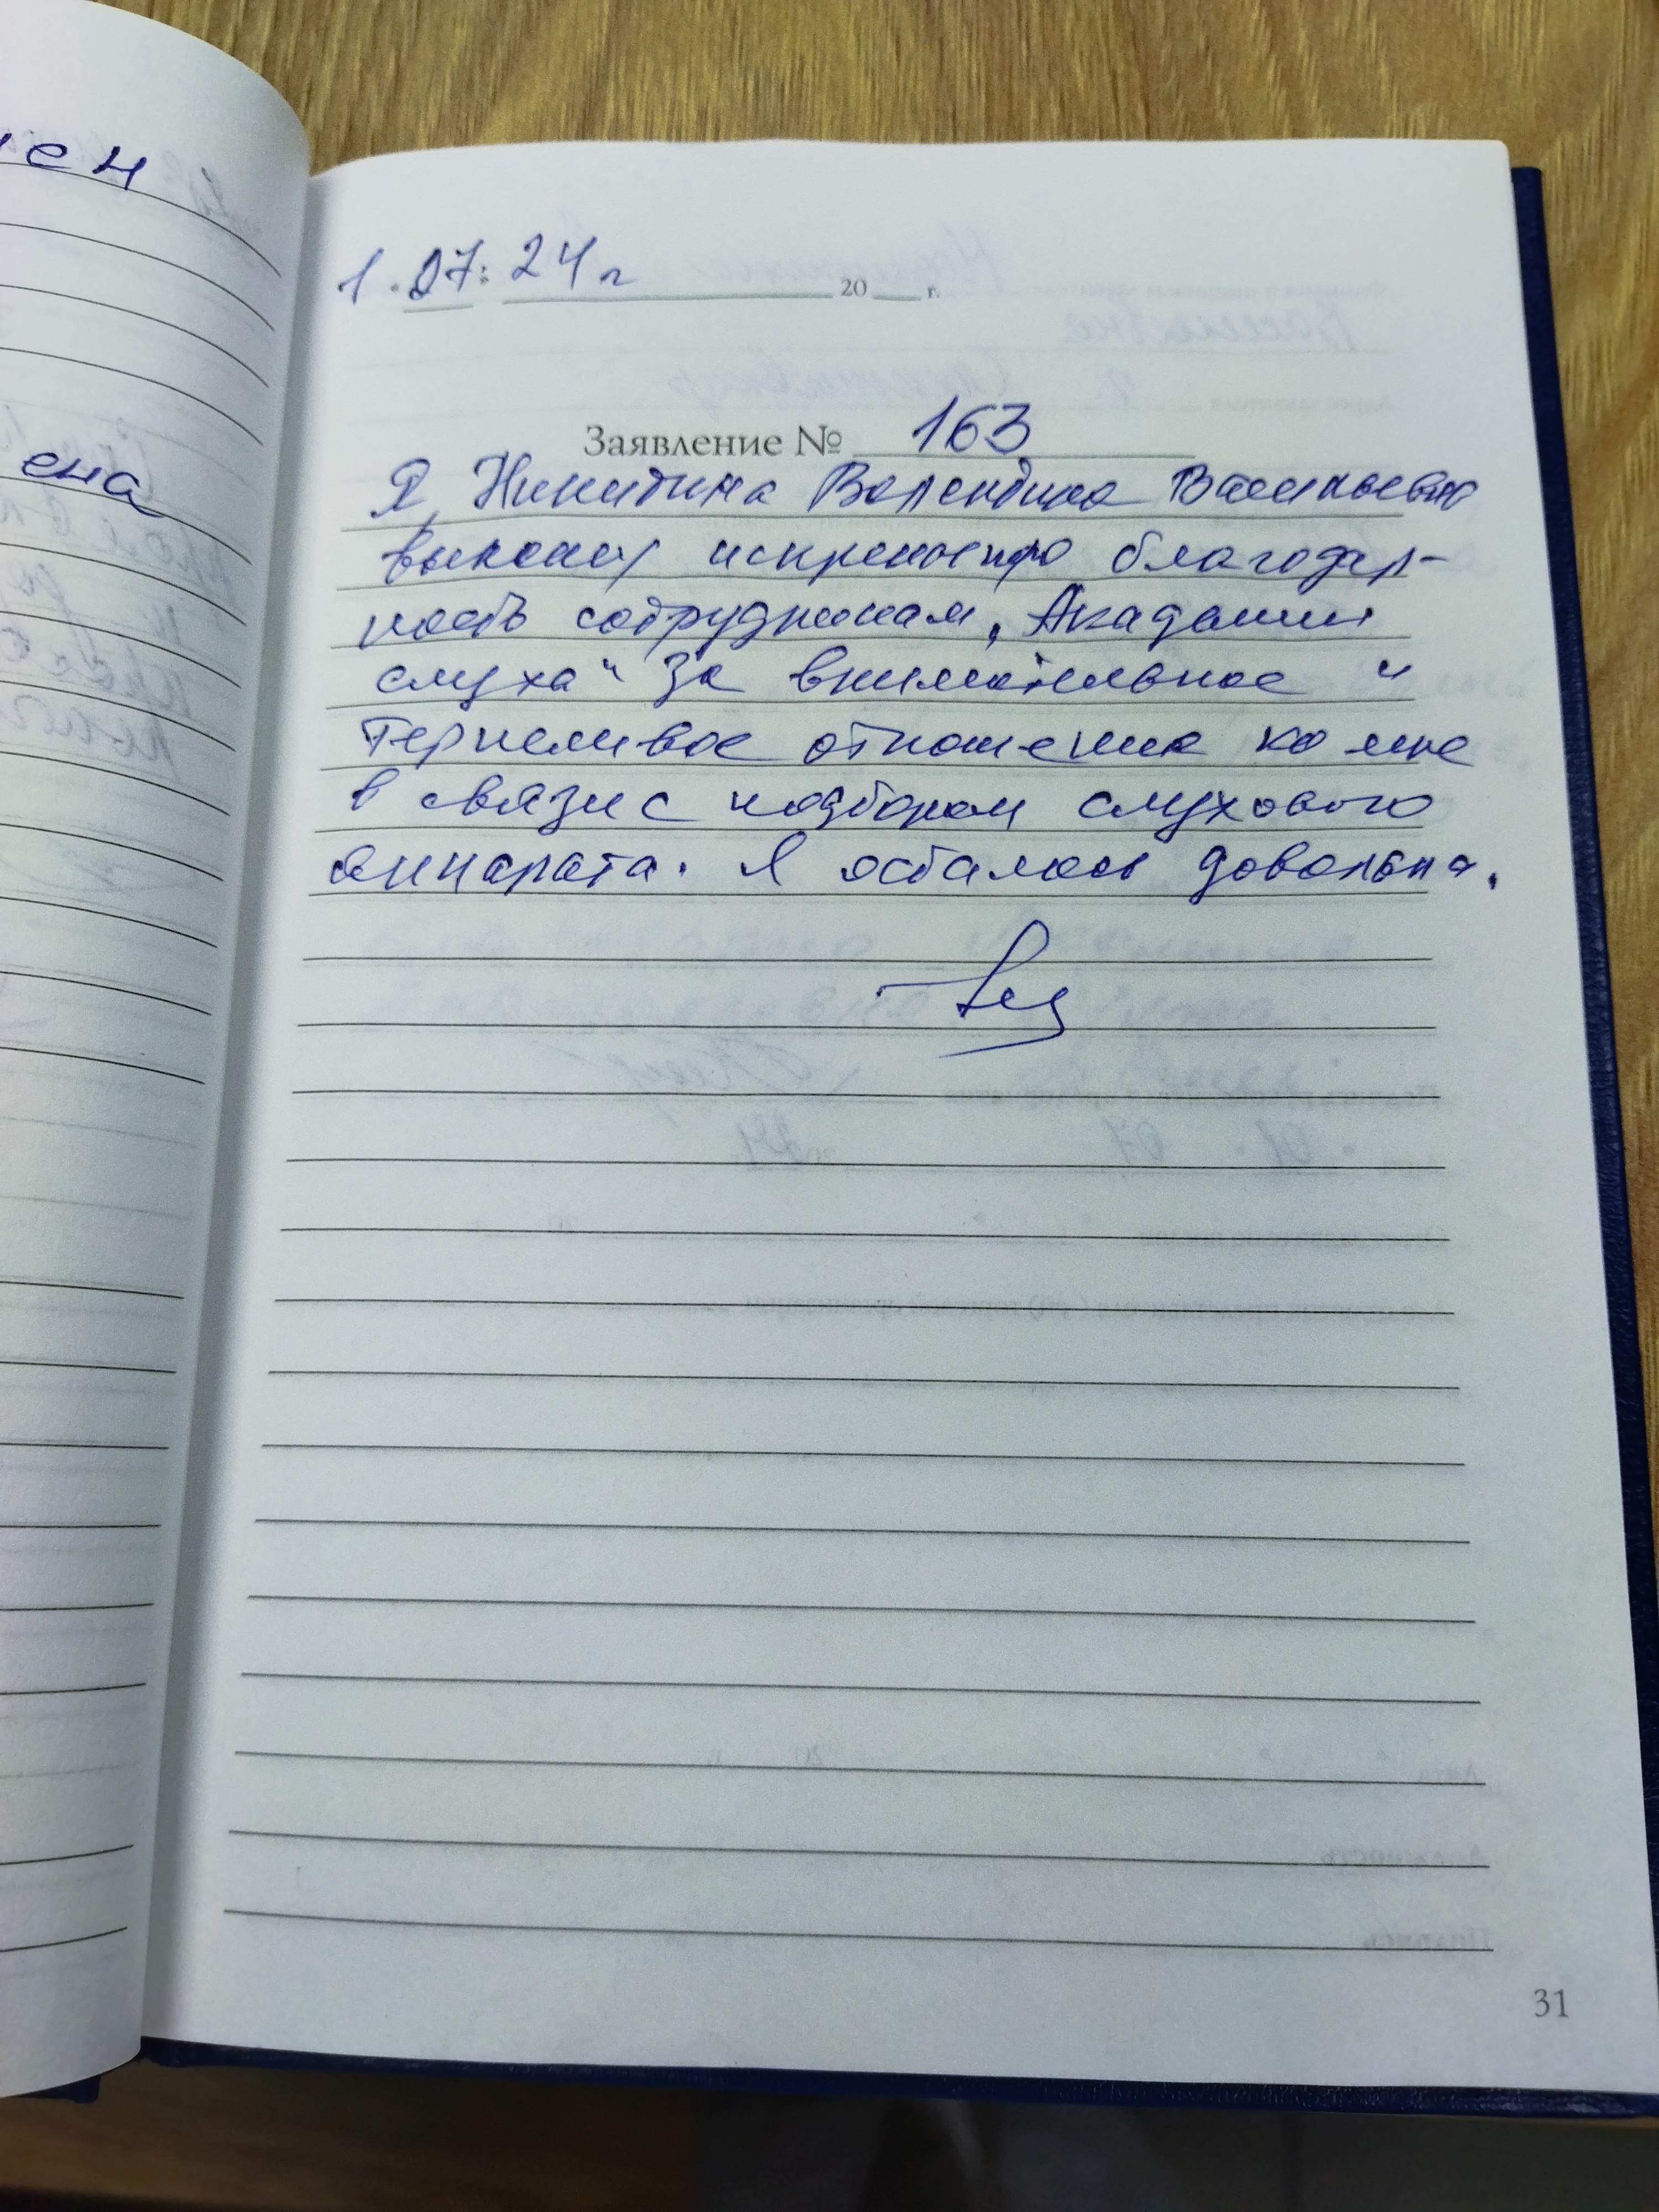 ен
ена
1.07.24 г
20 г.
Заявление № 163
Я, Никитина Валентина Васильевна
выношу искреннюю благодар-
ность сотрудникам „Академии
слуха“ за внимательное и
терпеливое отношение ко мне
в связи с подбором слухового
аппарата. Я осталась довольна.
31